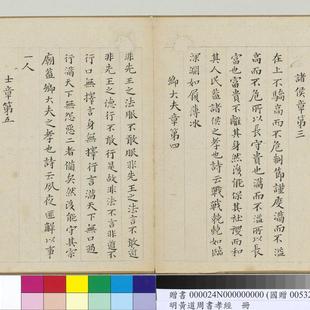 諸侯章第三
在上不驕高而不危制節謹度滿而不溢
高而不危所以長守貴也滿而不溢所以長守
富也富貴不離其身然後能保其社稷而和
其人民蓋諸侯之孝也詩云戰戰兢兢如臨
深淵如履薄冰
卿大夫章第四
非先王之法服不敢服非先王之法言不敢道
非先王之德行不敢行是故非法不言非道不
行口無擇言身無擇行言滿天下無口過
行滿天下無怨惡三者備矣然後能守其宗
廟蓋卿大夫之孝也詩云夙夜匪懈以事
一人
士章第五
贈書 000024N000000000 (國贈 00532
明黃道周書孝經 冊